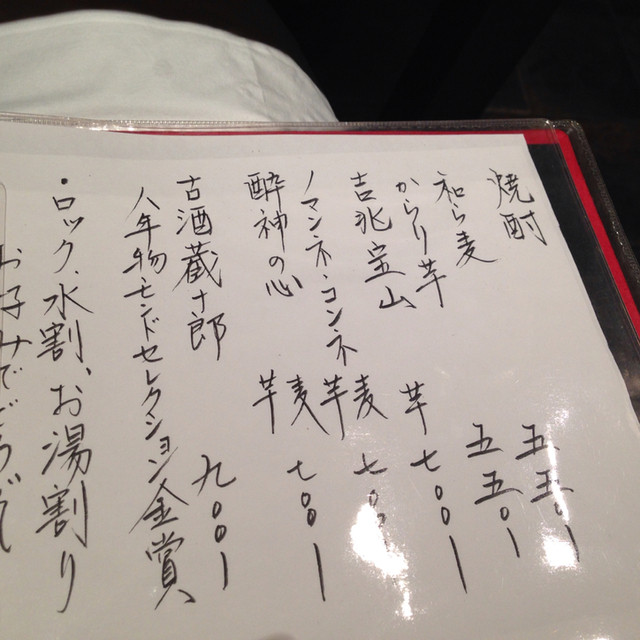 焼酎
和ら麦 五五〇ー
からり芋 五五〇ー
吉兆宝山 芋 七〇〇ー
ノマンネ・コンネ 麦 芋 七〇〇ー
酔神の心 麦 芋 七〇〇ー
古酒蔵十郎 九〇〇ー
八年物モンドセレクション金賞
・ロック、水割、お湯割り
お好みでどうぞ